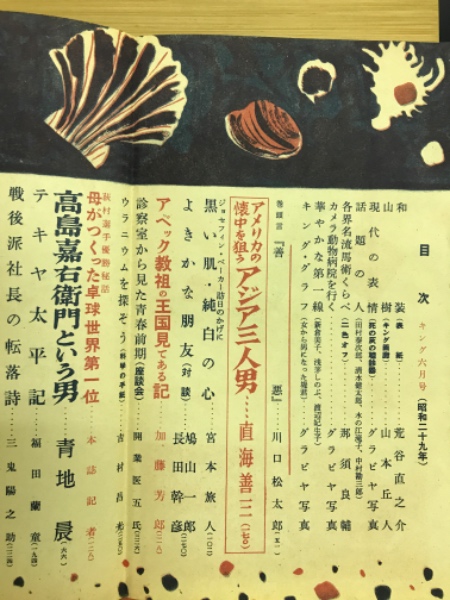 目次 キング六月号(昭和二十九年)
和装(表紙)‥‥荒谷直之介
山樹(キング画廊)‥‥山本丘人
現代の表情‥‥グラビヤ写真
話題の人(田村泰次郎、清水健太郎、水の江滝子、中村勘三郎)
各界名流馬術くらべ(二色オフ)‥‥那須良輔
カメラ動物病院を行く‥‥グラビヤ写真
華やかな第一線
キング・グラフ(女から男になった魔術)‥‥グラビヤ写真
巻頭言『善悪』‥‥川口松太郎(五一)
アメリカの懐中を狙う アジア三人男‥‥直海善三(一七〇)
ジョセフィン・ベーカー訪日のかげに
黒い肌・純白の心‥‥宮本旅人
よきかな朋友(対談)‥‥鳩山一郎 長田幹彦
アベック教祖の王国見てある記‥‥加藤芳郎
診察室から見た青春前期(座談会)‥‥開業医五氏
ウラニウムを探そう(科学の手紙)‥‥吉村昌光
荻村選手優勝秘話
母がつくった卓球世界第一位‥‥本誌記者
高島嘉右衛門という男‥‥青地晨
テキヤ太平記‥‥福田蘭童
戦後派社長の転落詩‥‥三鬼陽之助